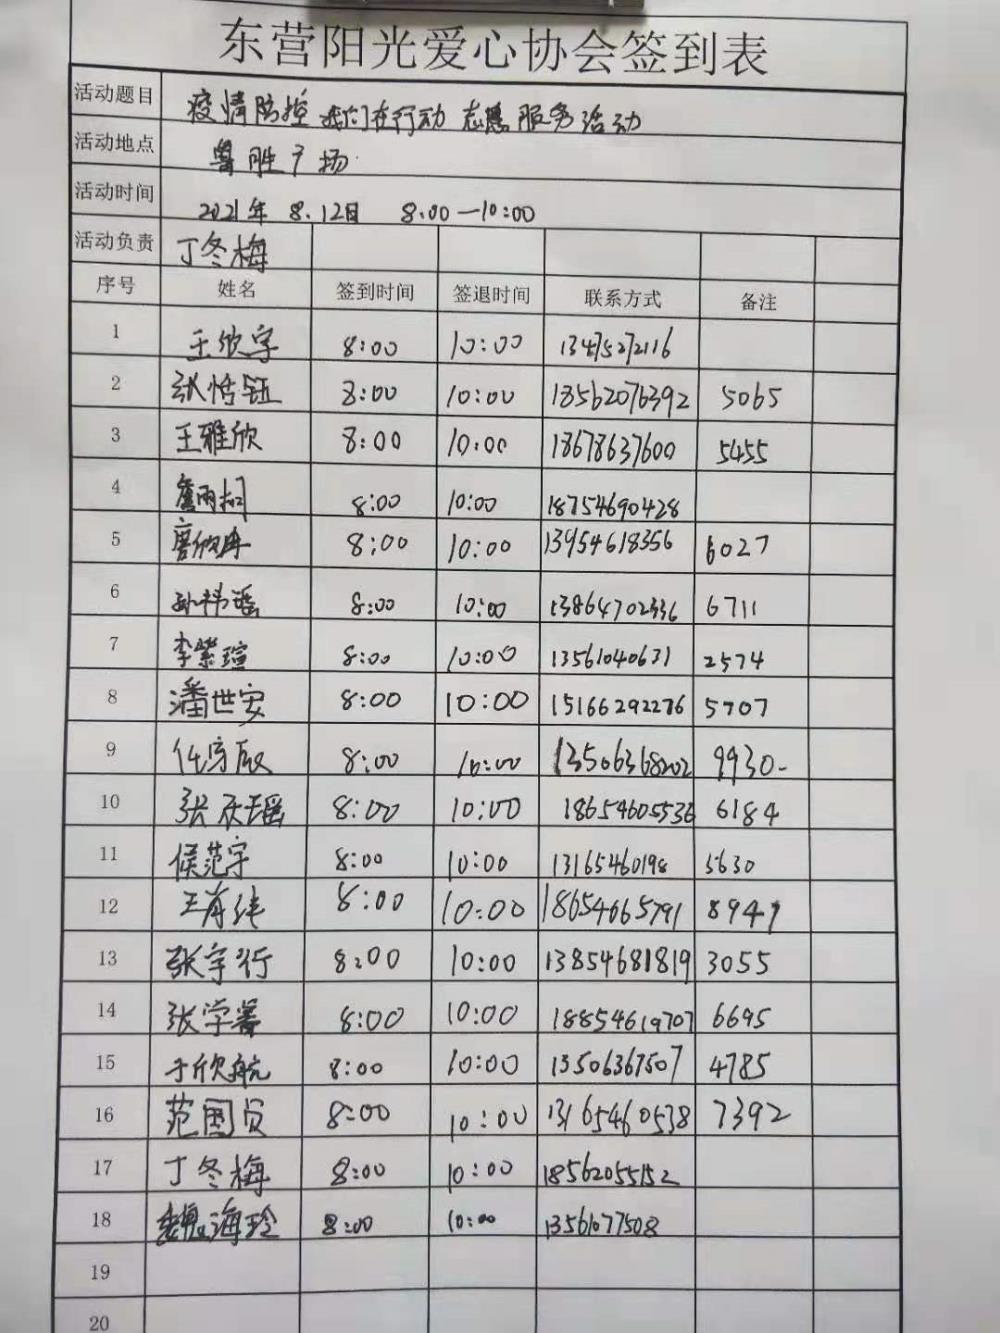 东营阳光爱心协会签到表
活动题目 疫情防控 我们在行动 志愿服务活动
活动地点 鲁胜广场
活动时间 2021年 8.12日 8:00—10:00
活动负责 丁冬梅
序号 姓名 签到时间 签退时间 联系方式 备注
1 王欣宇 8:00 10:00 13475272116
2 张恬钰 8:00 10:00 18562076392 5065
3 王雅欣 8:00 10:00 18678637600 5455
4 8:00 10:00 18754690428
5 8:00 10:00 13954618356 6027
6 孙祎瑶 8:00 10:00 13864702336 6711
7 李紫瑄 8:00 10:00 13561040631 2574
8 潘世安 8:00 10:00 15166292276 5707
9 8:00 10:00 13506368202 9930
10 8:00 10:00 18654605536 6184
11 侯范宇 8:00 10:00 13165460198 5630
12 8:00 10:00 18654665791 8941
13 张宇行 8:00 10:00 13854681819 3055
14 8:00 10:00 18854619707 6695
15 于欣航 8:00 10:00 13506367507 4785
16 范国员 8:00 10:00 13165460538 7392
17 丁冬梅 8:00 10:00 18562055152
18 魏海玲 8:00 10:00 13561077508
19
20